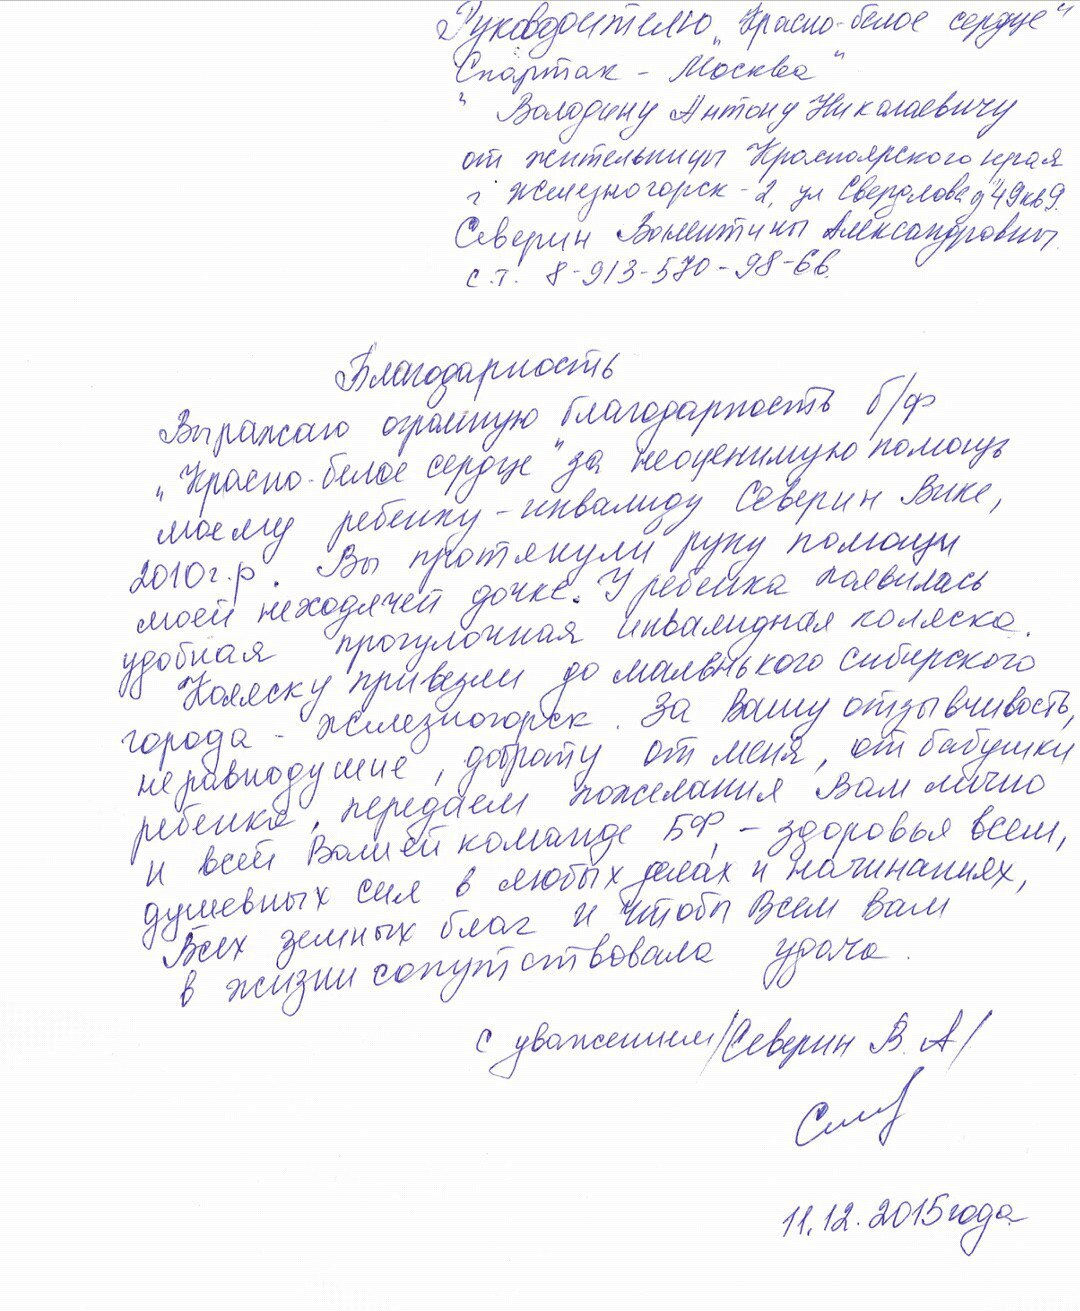 Руководителю „Красно-белое сердце"
Спартак - Москва"
" Володину Антону Николаевичу
от жительницы Красноярского края
г Железногорск-2, ул Свердлова д 49 кв 9.
Северин Валентины Александровны.
с.т. 8-913-570-98-66.
Благодарность
Выражаю огромную благодарность б/ф
„Красно-белое сердце" за неоценимую помощь
моему ребенку-инвалиду Северин Вике,
2010г.р. Вы протянули руку помощи
моей неходячей дочке. У ребенка появилась
удобная прогулочная инвалидная коляска.
Коляску привезли до маленького сибирского
города - Железногорск. За Вашу отзывчивость,
неравнодушие, доброту от меня, от бабушки
ребенка, передаем пожелания Вам лично
и всей Вашей команде БФ, - здоровья всем,
душевных сил в любых делах и начинаниях,
Всех земных благ и чтобы Всем Вам
в жизни сопутствовала удача.
с уважением /Северин В. А/
11.12.2015 года